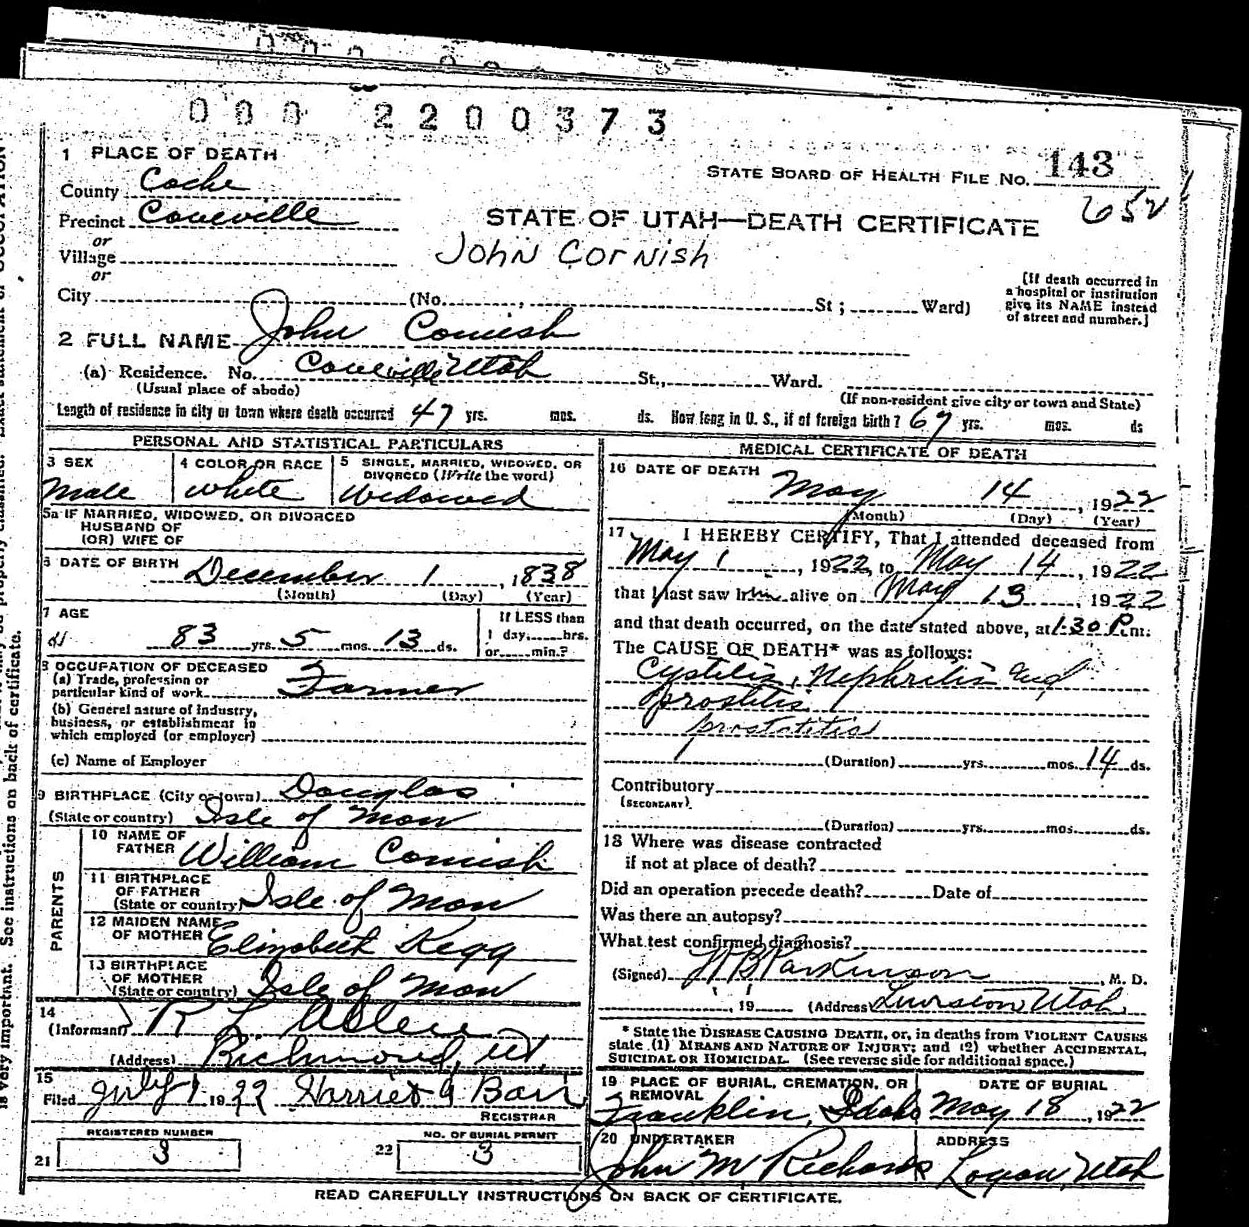 000 2200373
1 PLACE OF DEATH
STATE BOARD OF HEALTH FILE NO. 143
County Cache
652
Precinct Coveville
STATE OF UTAH—DEATH CERTIFICATE
or
Village
John Cornish
or
City (No. , St ; Ward)
[If death occurred in
a hospital or institution
give its NAME instead
of street and number.]
2 FULL NAME John Cornish
(a) Residence. No. Coveville Utah St., Ward.
(Usual place of abode)
(If non-resident give city or town and State)
Length of residence in city or town where death occurred 47 yrs. mos. ds. How long in U. S., if of foreign birth? 67 yrs. mos. ds
PERSONAL AND STATISTICAL PARTICULARS
3 SEX
Male
4 COLOR OR RACE
White
5 SINGLE, MARRIED, WIDOWED, OR
DIVORCED (Write the word)
Widowed
5a IF MARRIED, WIDOWED, OR DIVORCED
HUSBAND OF
(OR) WIFE OF
6 DATE OF BIRTH December 1, 1838
(Month) (Day) (Year)
7 AGE
83 yrs. 5 mos. 13 ds.
If LESS than
1 day, hrs.
or min.?
8 OCCUPATION OF DECEASED
(a) Trade, profession or
particular kind of work Farmer
(b) General nature of industry,
business, or establishment in
which employed (or employer)
(c) Name of Employer
9 BIRTHPLACE (City or town) Douglas
(State or country) Isle of Man
PARENTS
10 NAME OF
FATHER William Cornish
11 BIRTHPLACE
OF FATHER
(State or country) Isle of Man
12 MAIDEN NAME
OF MOTHER Elizabeth Kegg
13 BIRTHPLACE
OF MOTHER
(State or country) Isle of Man
14
(Informant) R L
(Address) Richmond, Ut
15
Filed July 1 1922 Harriet A Bair
REGISTRAR
REGISTERED NUMBER
21 3
NO. OF BURIAL PERMIT
22 3
MEDICAL CERTIFICATE OF DEATH
16 DATE OF DEATH
May 14, 1922
(Month) (Day) (Year)
17 I HEREBY CERTIFY, That I attended deceased from
May 1, 1922, to May 14, 1922
that I last saw him alive on May 13, 1922
and that death occurred, on the date stated above, at 1:30 P.m.
The CAUSE OF DEATH* was as follows:
Cystitis, Nephritis and
prostitis
prostatitis
(Duration) yrs. mos. 14 ds.
Contributory
(SECONDARY)
(Duration) yrs. mos. ds.
18 Where was disease contracted
if not at place of death?
Did an operation precede death? Date of
Was there an autopsy?
What test confirmed diagnosis?
(Signed) W B Parkinson, M. D.
, 19 (Address) Lewiston Utah
* State the DISEASE CAUSING DEATH, or, in deaths from VIOLENT CAUSES
state (1) MEANS AND NATURE OF INJURY; and (2) whether ACCIDENTAL,
SUICIDAL OR HOMICIDAL. (See reverse side for additional space.)
19 PLACE OF BURIAL, CREMATION, OR
REMOVAL
Franklin, Idaho
DATE OF BURIAL
May 18, 1922
20 UNDERTAKER
John M Richards
ADDRESS
Logan, Utah
READ CAREFULLY INSTRUCTIONS ON BACK OF CERTIFICATE.
is very important. See instructions on back of certificate.